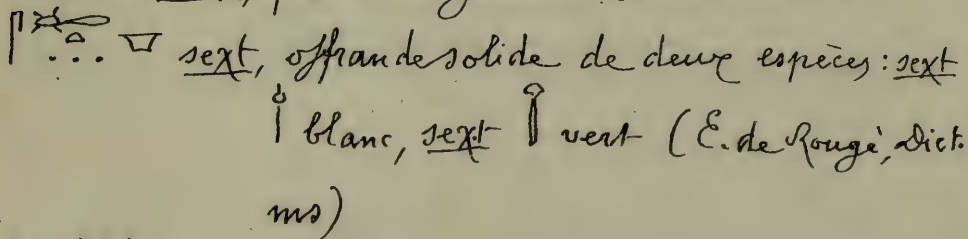 sext, offrande solide de deux espèces : sext
blanc, sext vert (E. de Rougé, Dict.
ms)